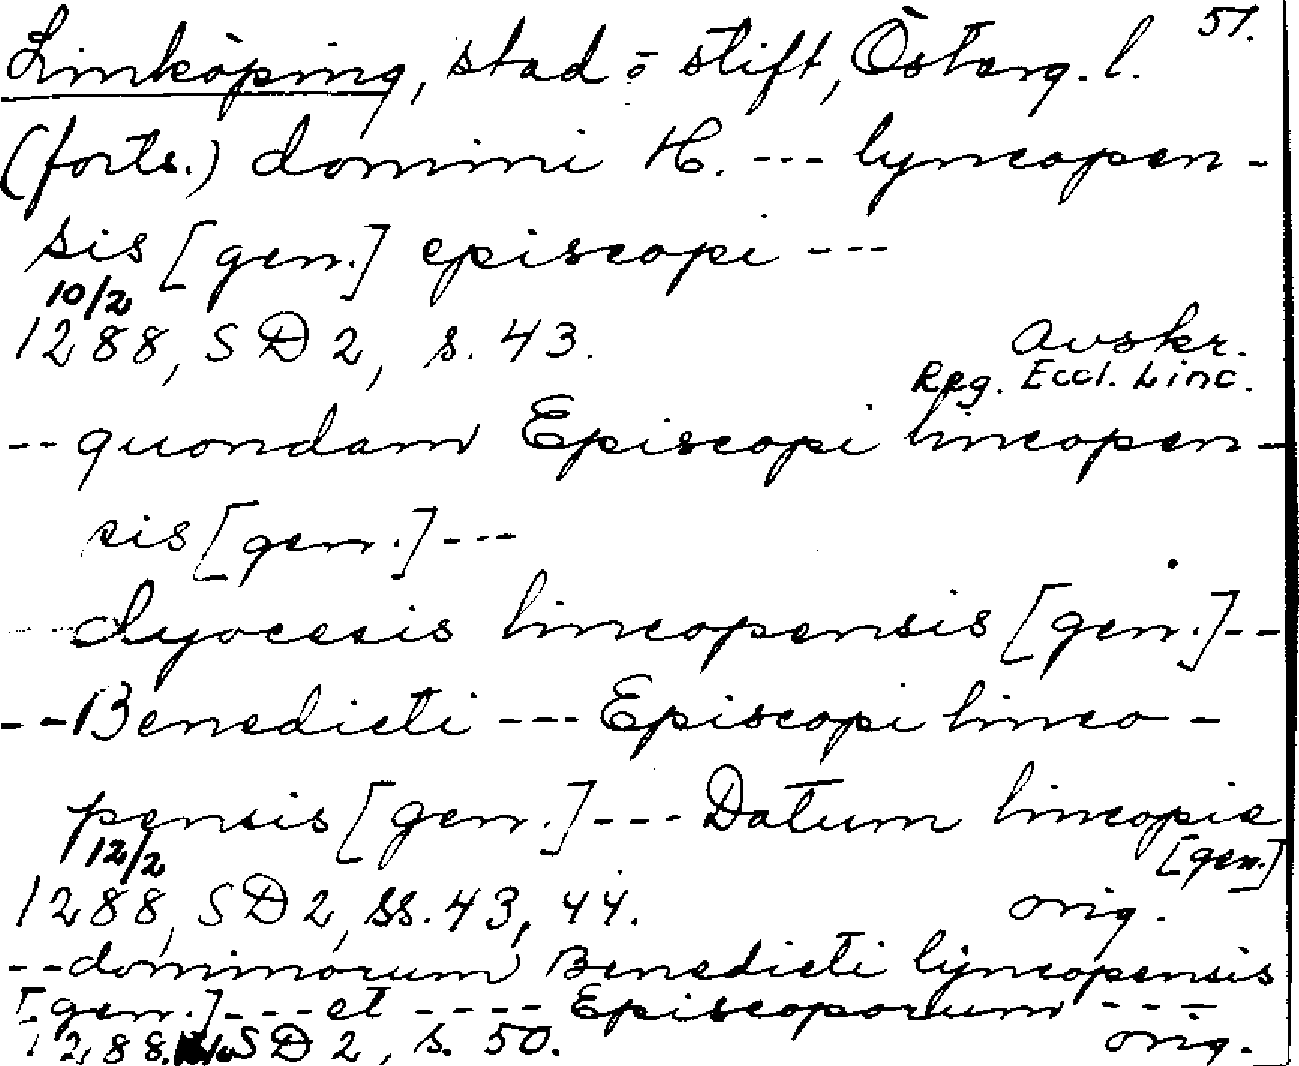 51.
Linköping, stad o stift, Österg. l.
(forts.) domini H. --- lyncopen-
sis [gen.] episcopi ---
10/2
1288, SD 2, s. 43. Avskr.
Reg. Eccl. Linc.
-- quondam Episcopi lincopen-
sis [gen.] ---
-- dyocesis lincopensis [gen.] --
-- Benedicti --- Episcopi linco-
pensis [gen.] --- Datum lincopie
12/2 [gen.]
1288, SD 2, ss. 43, 44. orig.
-- dominorum Benedicti lyncopensis
[gen.] --- et ---- Episcoporum ----
1288. SD 2, s. 50. orig.